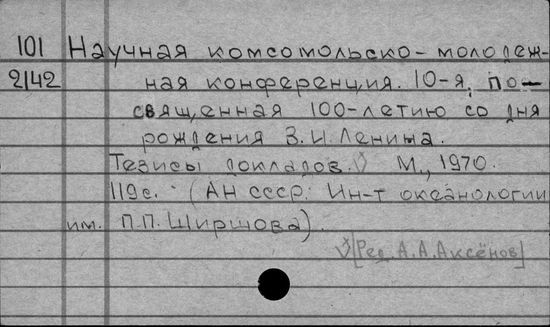 101 Научная комсомольско-молодеж-
2142 ная конференция. 10-я, по-
священная 100-летию со дня
рождения В.И.Ленина.
Тезисы докладов. V М., 1970.
119с. (АН СССР. Ин-т океанологии
им. П.П.Ширшова).
V [Ред. А.А.Аксёнов]